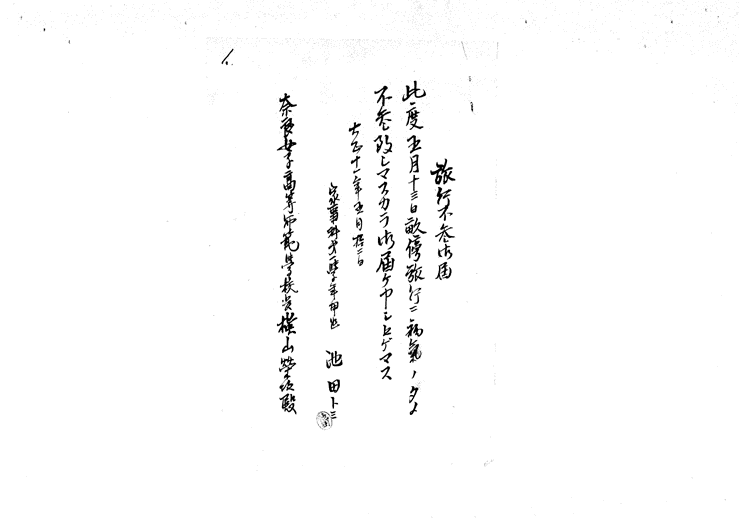 旅行不参御届
此度五月十三日畝傍旅行ニ病氣ノタメ
不参致シマスカラ御届ケ申シ上ゲマス
大正十一年五月拾二日
家事科第一學年
池田トミ
奈良女子高等師範學校長横山榮次殿